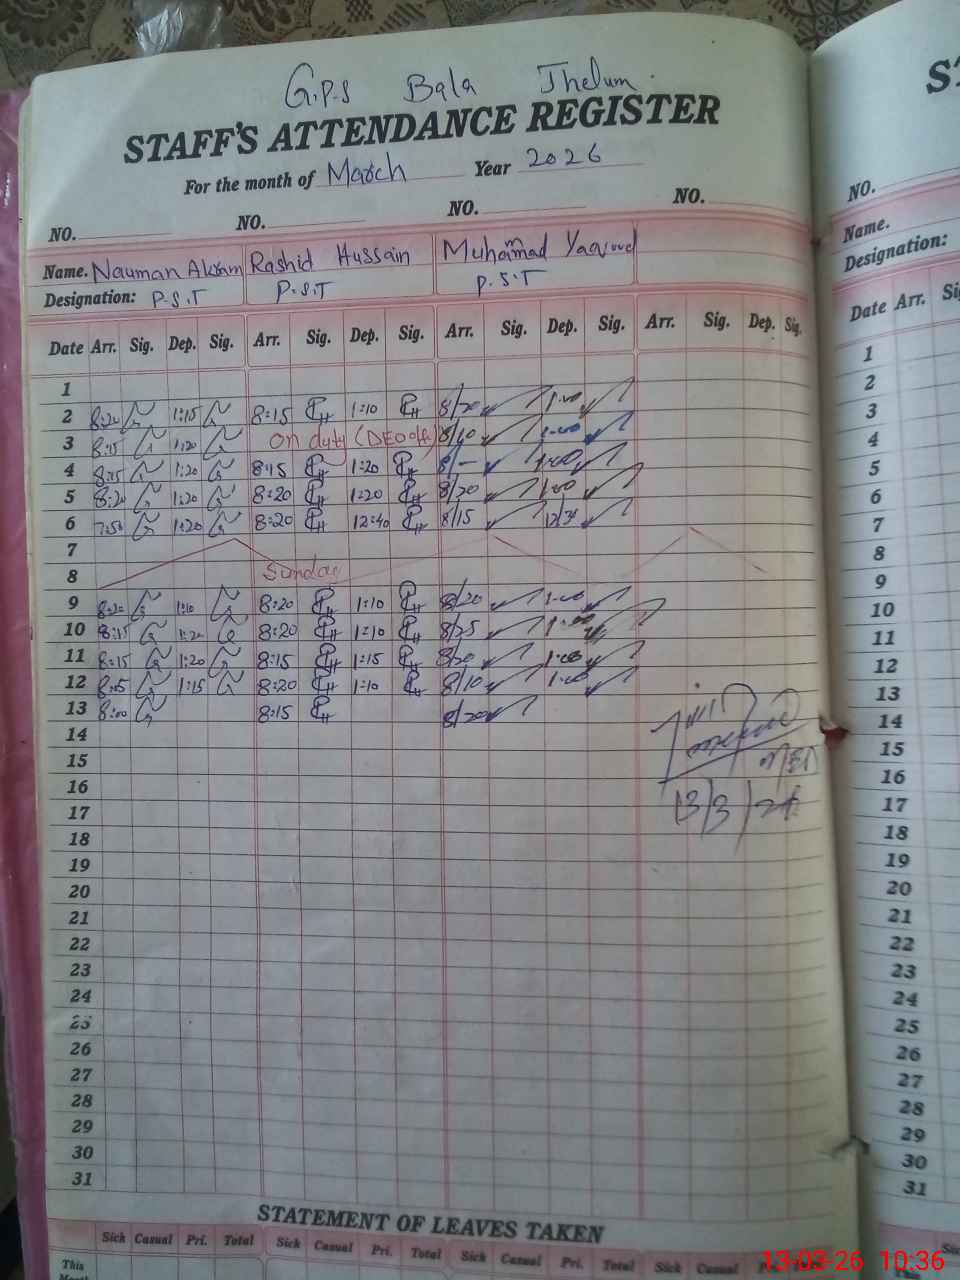 G.P.S Bala Jhelum
STAFF'S ATTENDANCE REGISTER
For the month of March Year 2026
NO. NO. NO. NO.
Name. Nauman Akram Rashid Hussain Muhammad Yaqoob
Designation: P.S.T P.S.T P.S.T
Date Arr. Sig. Dep. Sig. Arr. Sig. Dep. Sig. Arr. Sig. Dep. Sig. Arr. Sig. Dep. Sig.
1
2 8:20 1:15 8:15 1:10 8/20 1:00
3 8:15 1:20 On duty (DEO office) 8/10 1:00
4 8:15 1:20 8:15 1:20 8/— 1:00
5 8:20 1:20 8:20 1:20 8/20 1:00
6 7:50 1:20 8:20 12:40 8/15 12/30
7
8 Sunday
9 8:20 1:10 8:20 1:10 8/20 1:00
10 8:15 1:20 8:20 1:10 8/25 1:00
11 8:15 1:20 8:15 1:15 8/20 1:00
12 8:15 1:15 8:20 1:10 8/10 1:00
13 8:00 8:15 8/20
14
15
16
17 13/3/26
18
19
20
21
22
23
24
25
26
27
28
29
30
31
STATEMENT OF LEAVES TAKEN
Sick Casual Pri. Total Sick Casual Pri. Total Sick Casual Pri. Total Sick Casual Pri. Total
This
Month
NO.
Name.
Designation:
Date Arr.
1
2
3
4
5
6
7
8
9
10
11
12
13
14
15
16
17
18
19
20
21
22
23
24
25
26
27
28
29
30
31
13-03-26 10:36